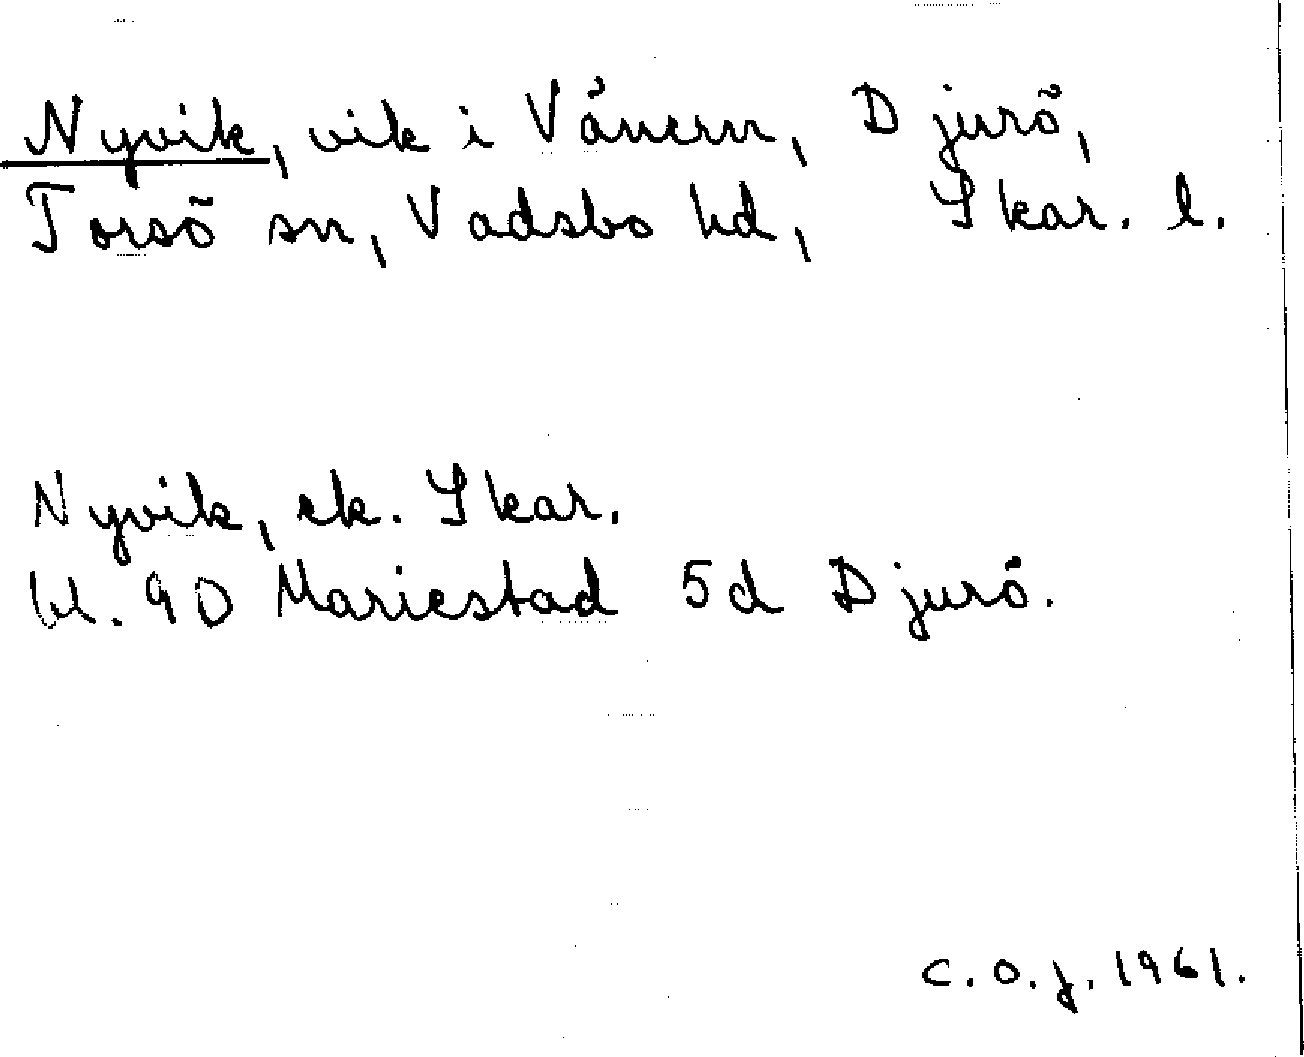 Nyvik, vik i Vänern, Djurö,
Torsö sn, Vadsbo hd, Skar. l.
Nyvik, ek. Skar.
bl. 90 Mariestad 5d Djurö.
C.O.J. 1961.